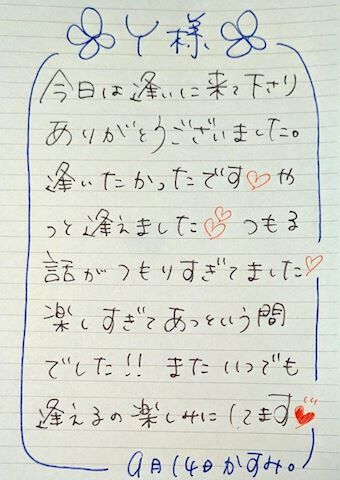 Y様
今日は逢いに来て下さり
ありがとうございました。
逢いたかったです♡や
っと逢えました♡♡つもる
話がつもりすぎてました♡
楽しすぎてあっという間
でした!!またいつでも
逢えるの楽しみにしてます♥
9月14日かすみ。